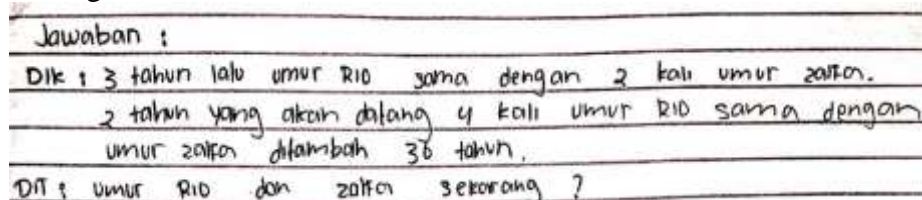 Jawaban :
Dik : 3 tahun lalu umur RIO sama dengan 2 kali umur zalfa.
2 tahun yang akan datang 4 kali umur RIO sama dengan
umur zalfa ditambah 36 tahun.
DIT : umur RIO dan zalfa sekarang ?